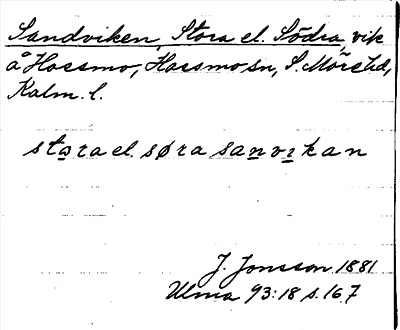 Sandviken, Stora el. Södra, vik
å Hossmo, Hossmo sn, S. Möre hd,
Kalm. l.
stora el. søra sanvikan
J. Jonsson 1881
Ulma 93:18 s. 167